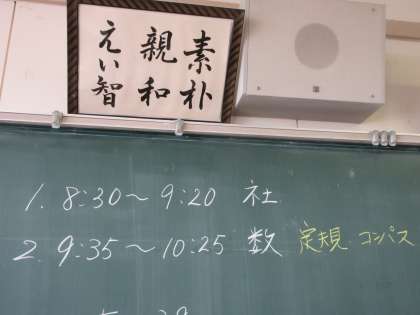 素朴
親和
えい智
1. 8:30〜9:20 社
2. 9:35〜10:25 数 定規 コンパス